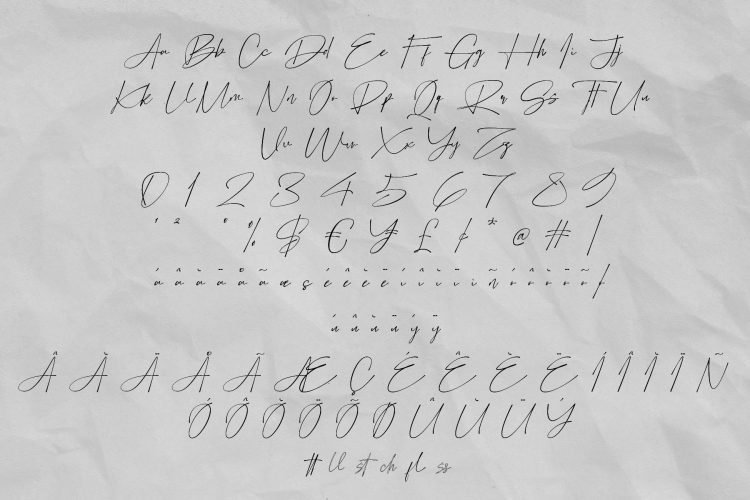 Aa Bb Cc Dd Ee Ff Gg Hh Ii Jj
Kk Ll Mm Nn Oo Pp Qq Rr Ss Tt Uu
Vv Ww Xx Yy Zz
0 1 2 3 4 5 6 7 8 9
% $ € ¥ £ ¢ * @ # |
á â à ä å ã æ ç é ê è ë í î ì ï ñ ó ô ò ö õ
ú û ù ü ý ÿ
Â À Ä Å Ã Æ Ç É Ê È Ë Í Î Ì Ï Ñ
Ó Ô Ò Ö Õ Ø Û Ù Ü Ý
tt ll st ch fl ss